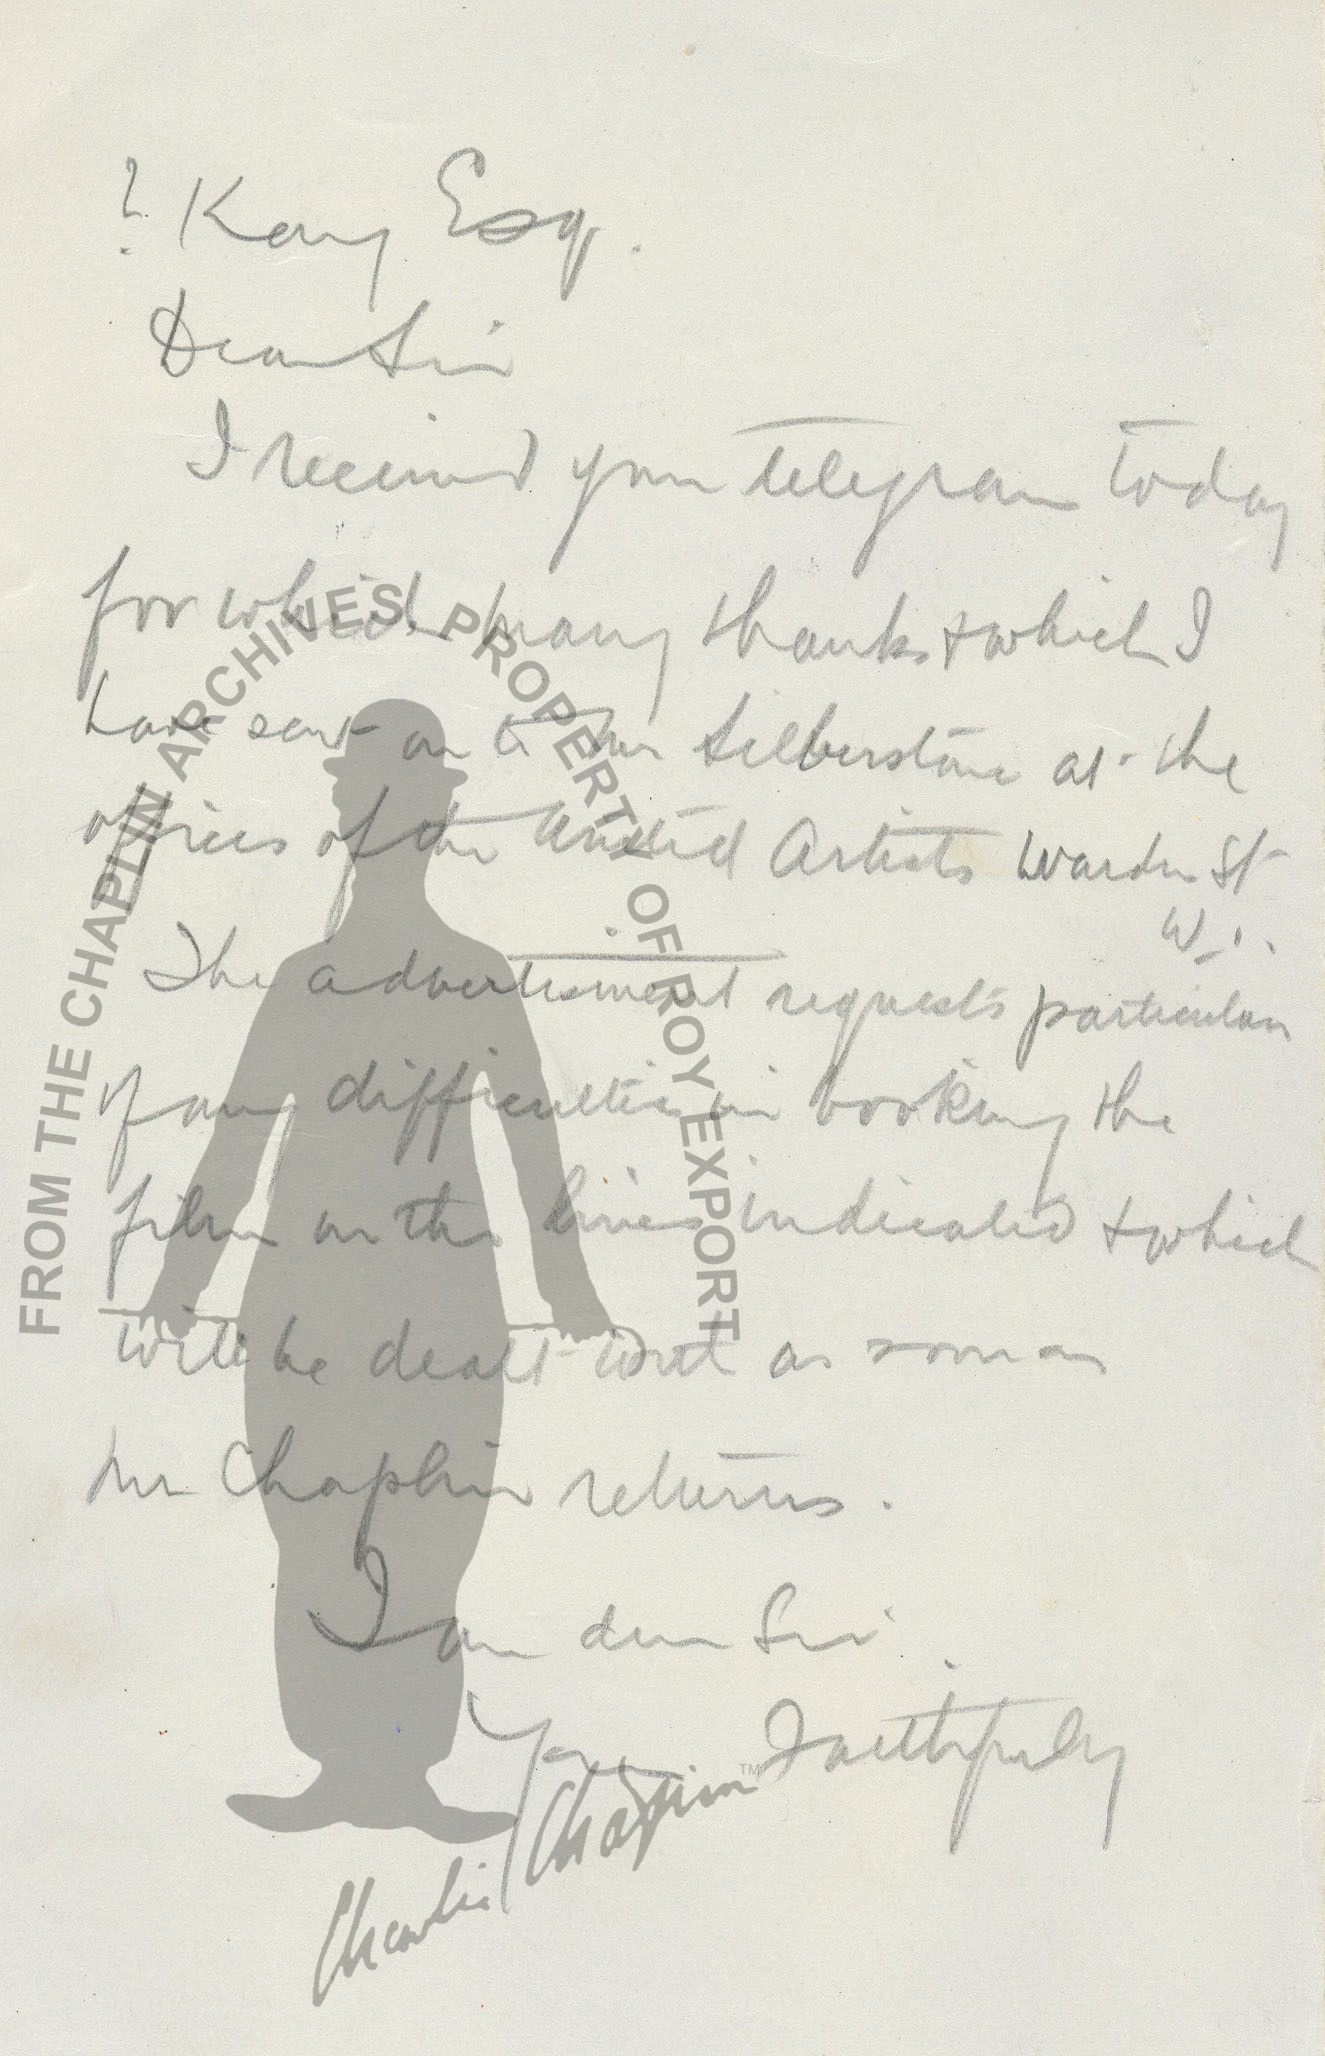 ? Kay Esq.
Dear Sir
I received your telegram today
for which many thanks & which I
have sent on to Mr Silberstone at the
offices of the United Artists Wardour St
W.1.
The advertisement requests particulars
of any difficulties in booking the
film on the lines indicated & which
will be dealt with as soon as
Mr Chaplin returns.
I am dear Sir
Yours Faithfully
FROM THE CHAPLIN ARCHIVES, PROPERTY OF ROY EXPORT
Charlie Chaplin™